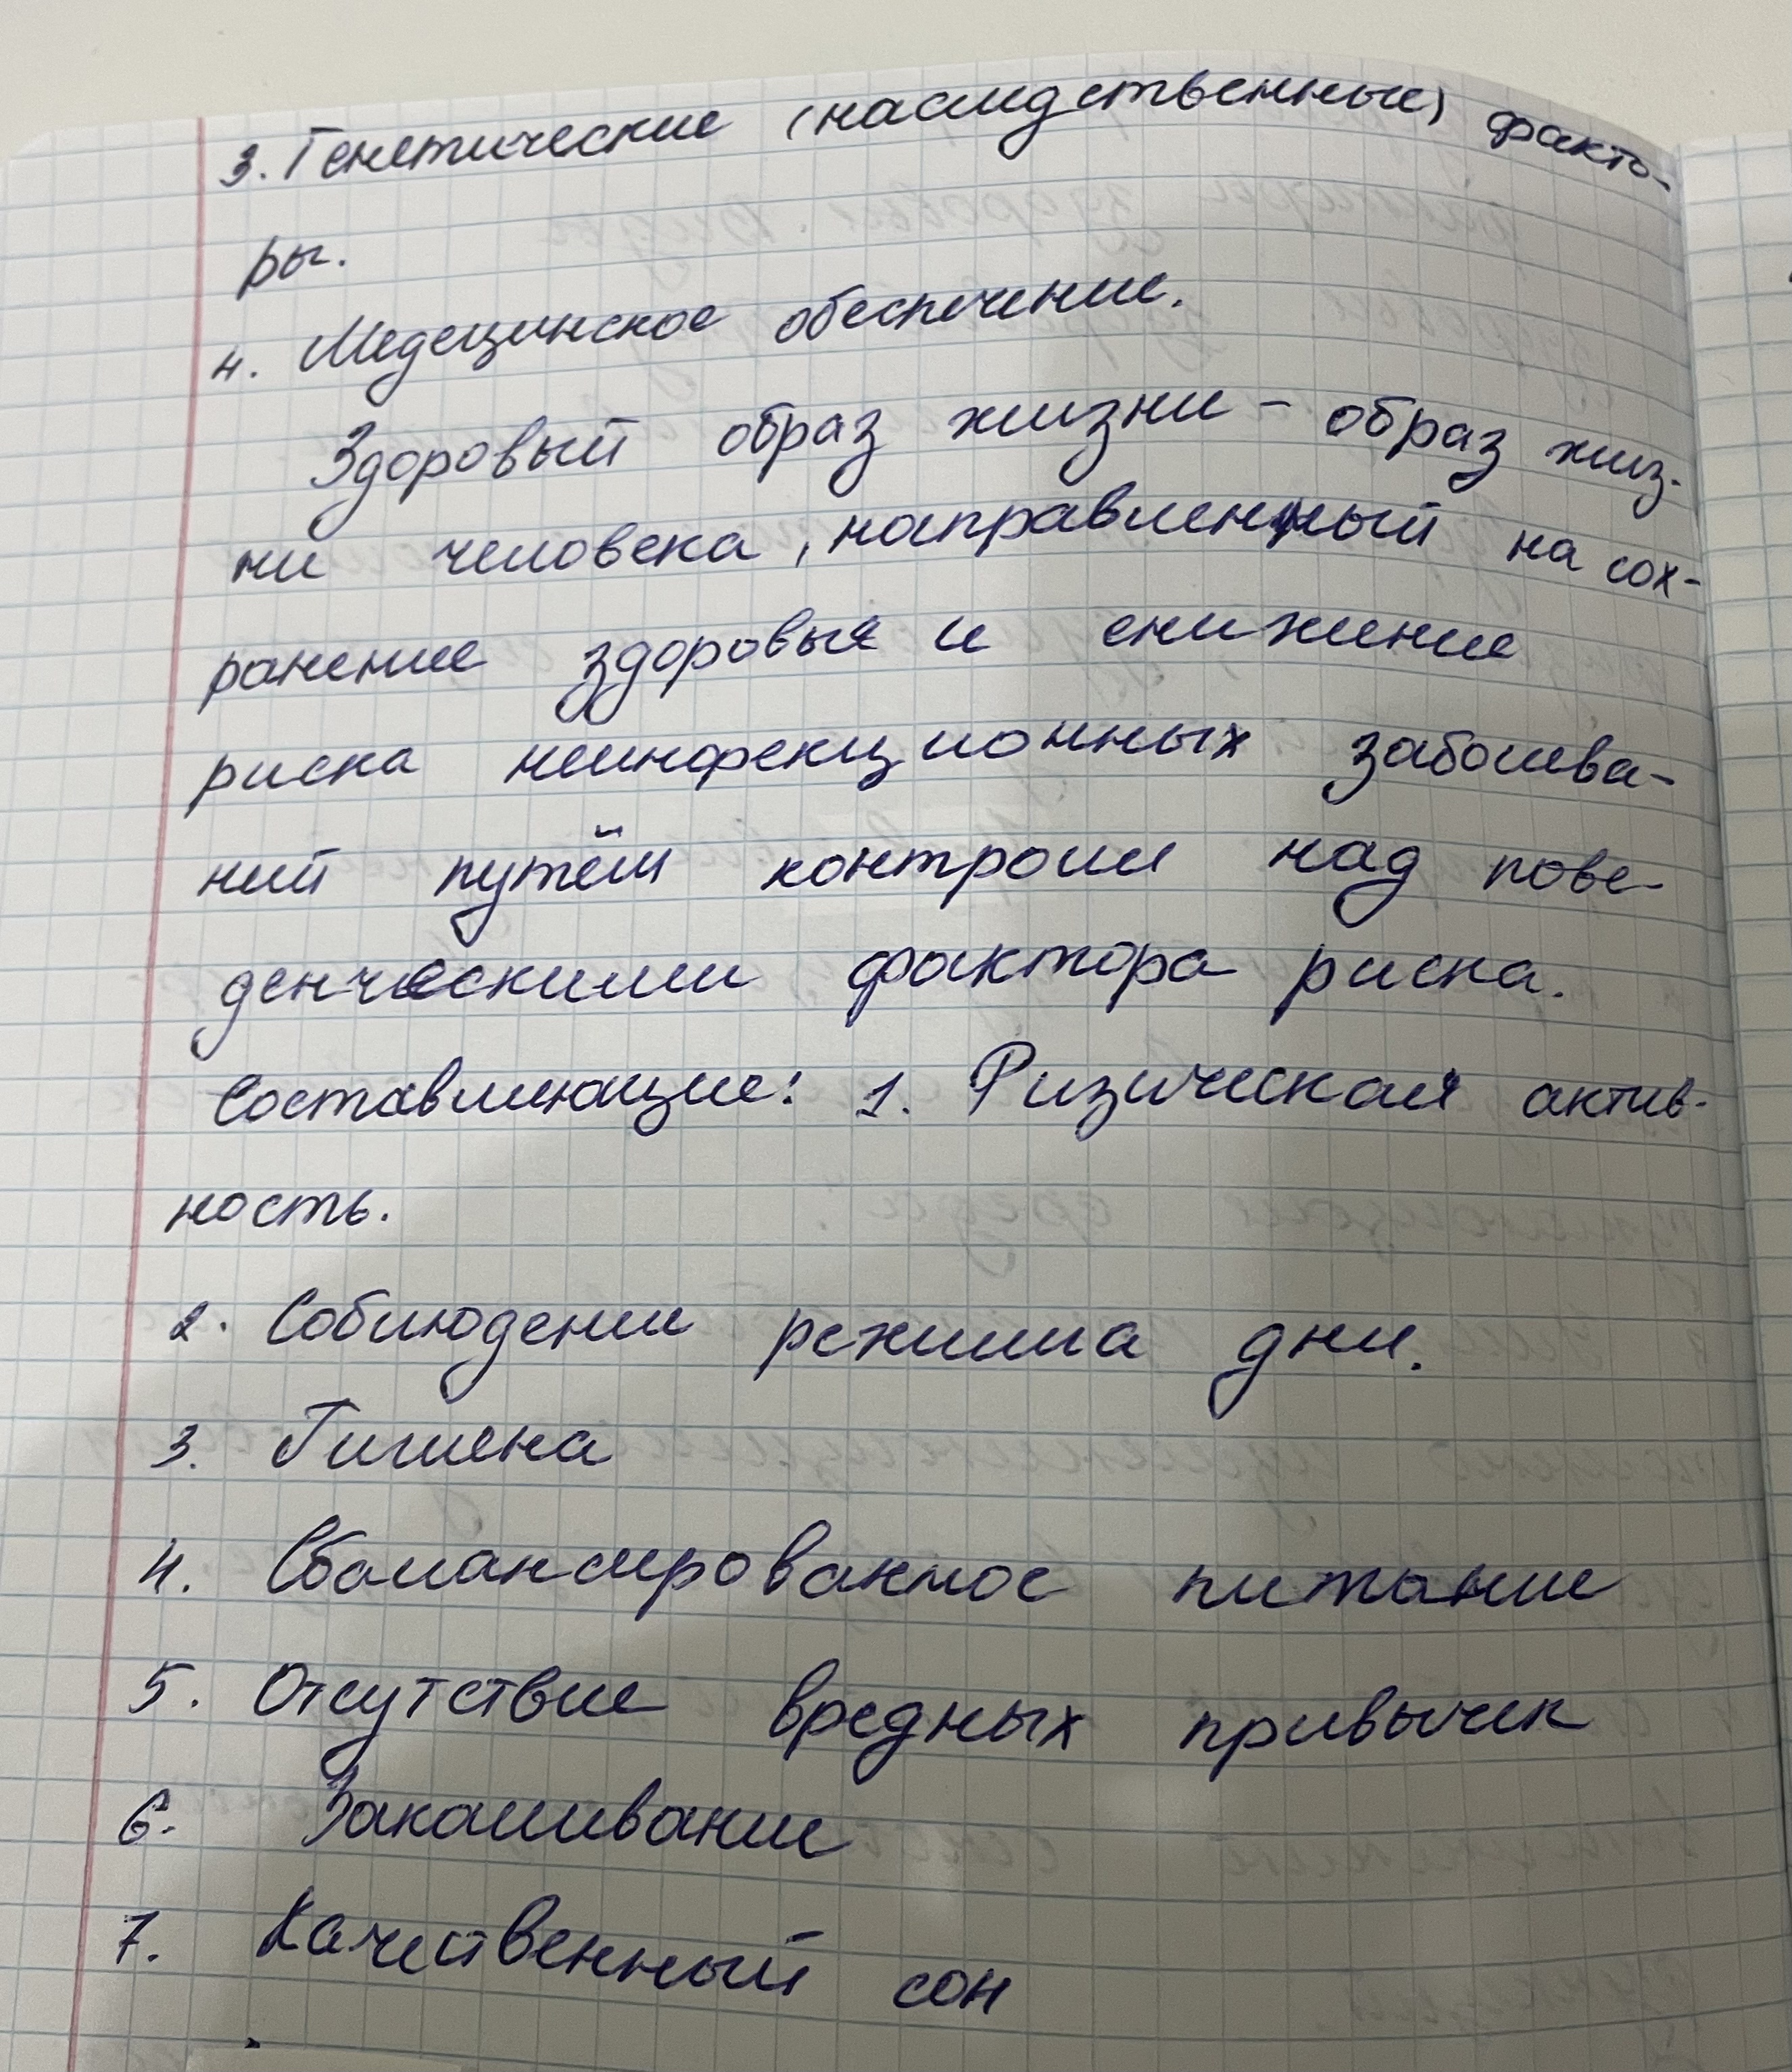 3. Генетические (наследственные) факто-
ры.
4. Медецинское обеспечение.
Здоровый образ жизни - образ жиз-
ни человека, направленный на сох-
ранение здоровья и снижение
риска неинфекционных заболева-
ний путём контроля над пове-
денческими фактора риска.
Составляющие: 1. Физическая актив-
ность.
2. Соблюдение режима дня.
3. Гигиена
4. Сбалансированное питание
5. Отсутствие вредных привычек
6. Закаливание
7. Качественный сон